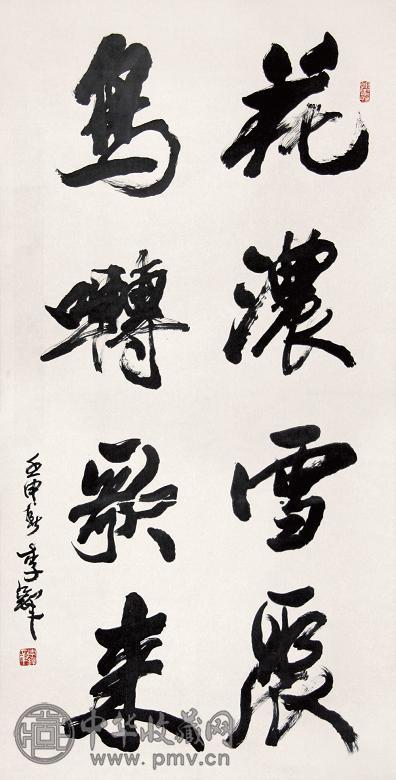 花濃雪聚
鳥囀歌来
壬申春 李鐸
中华收藏网
www.pmv.cn